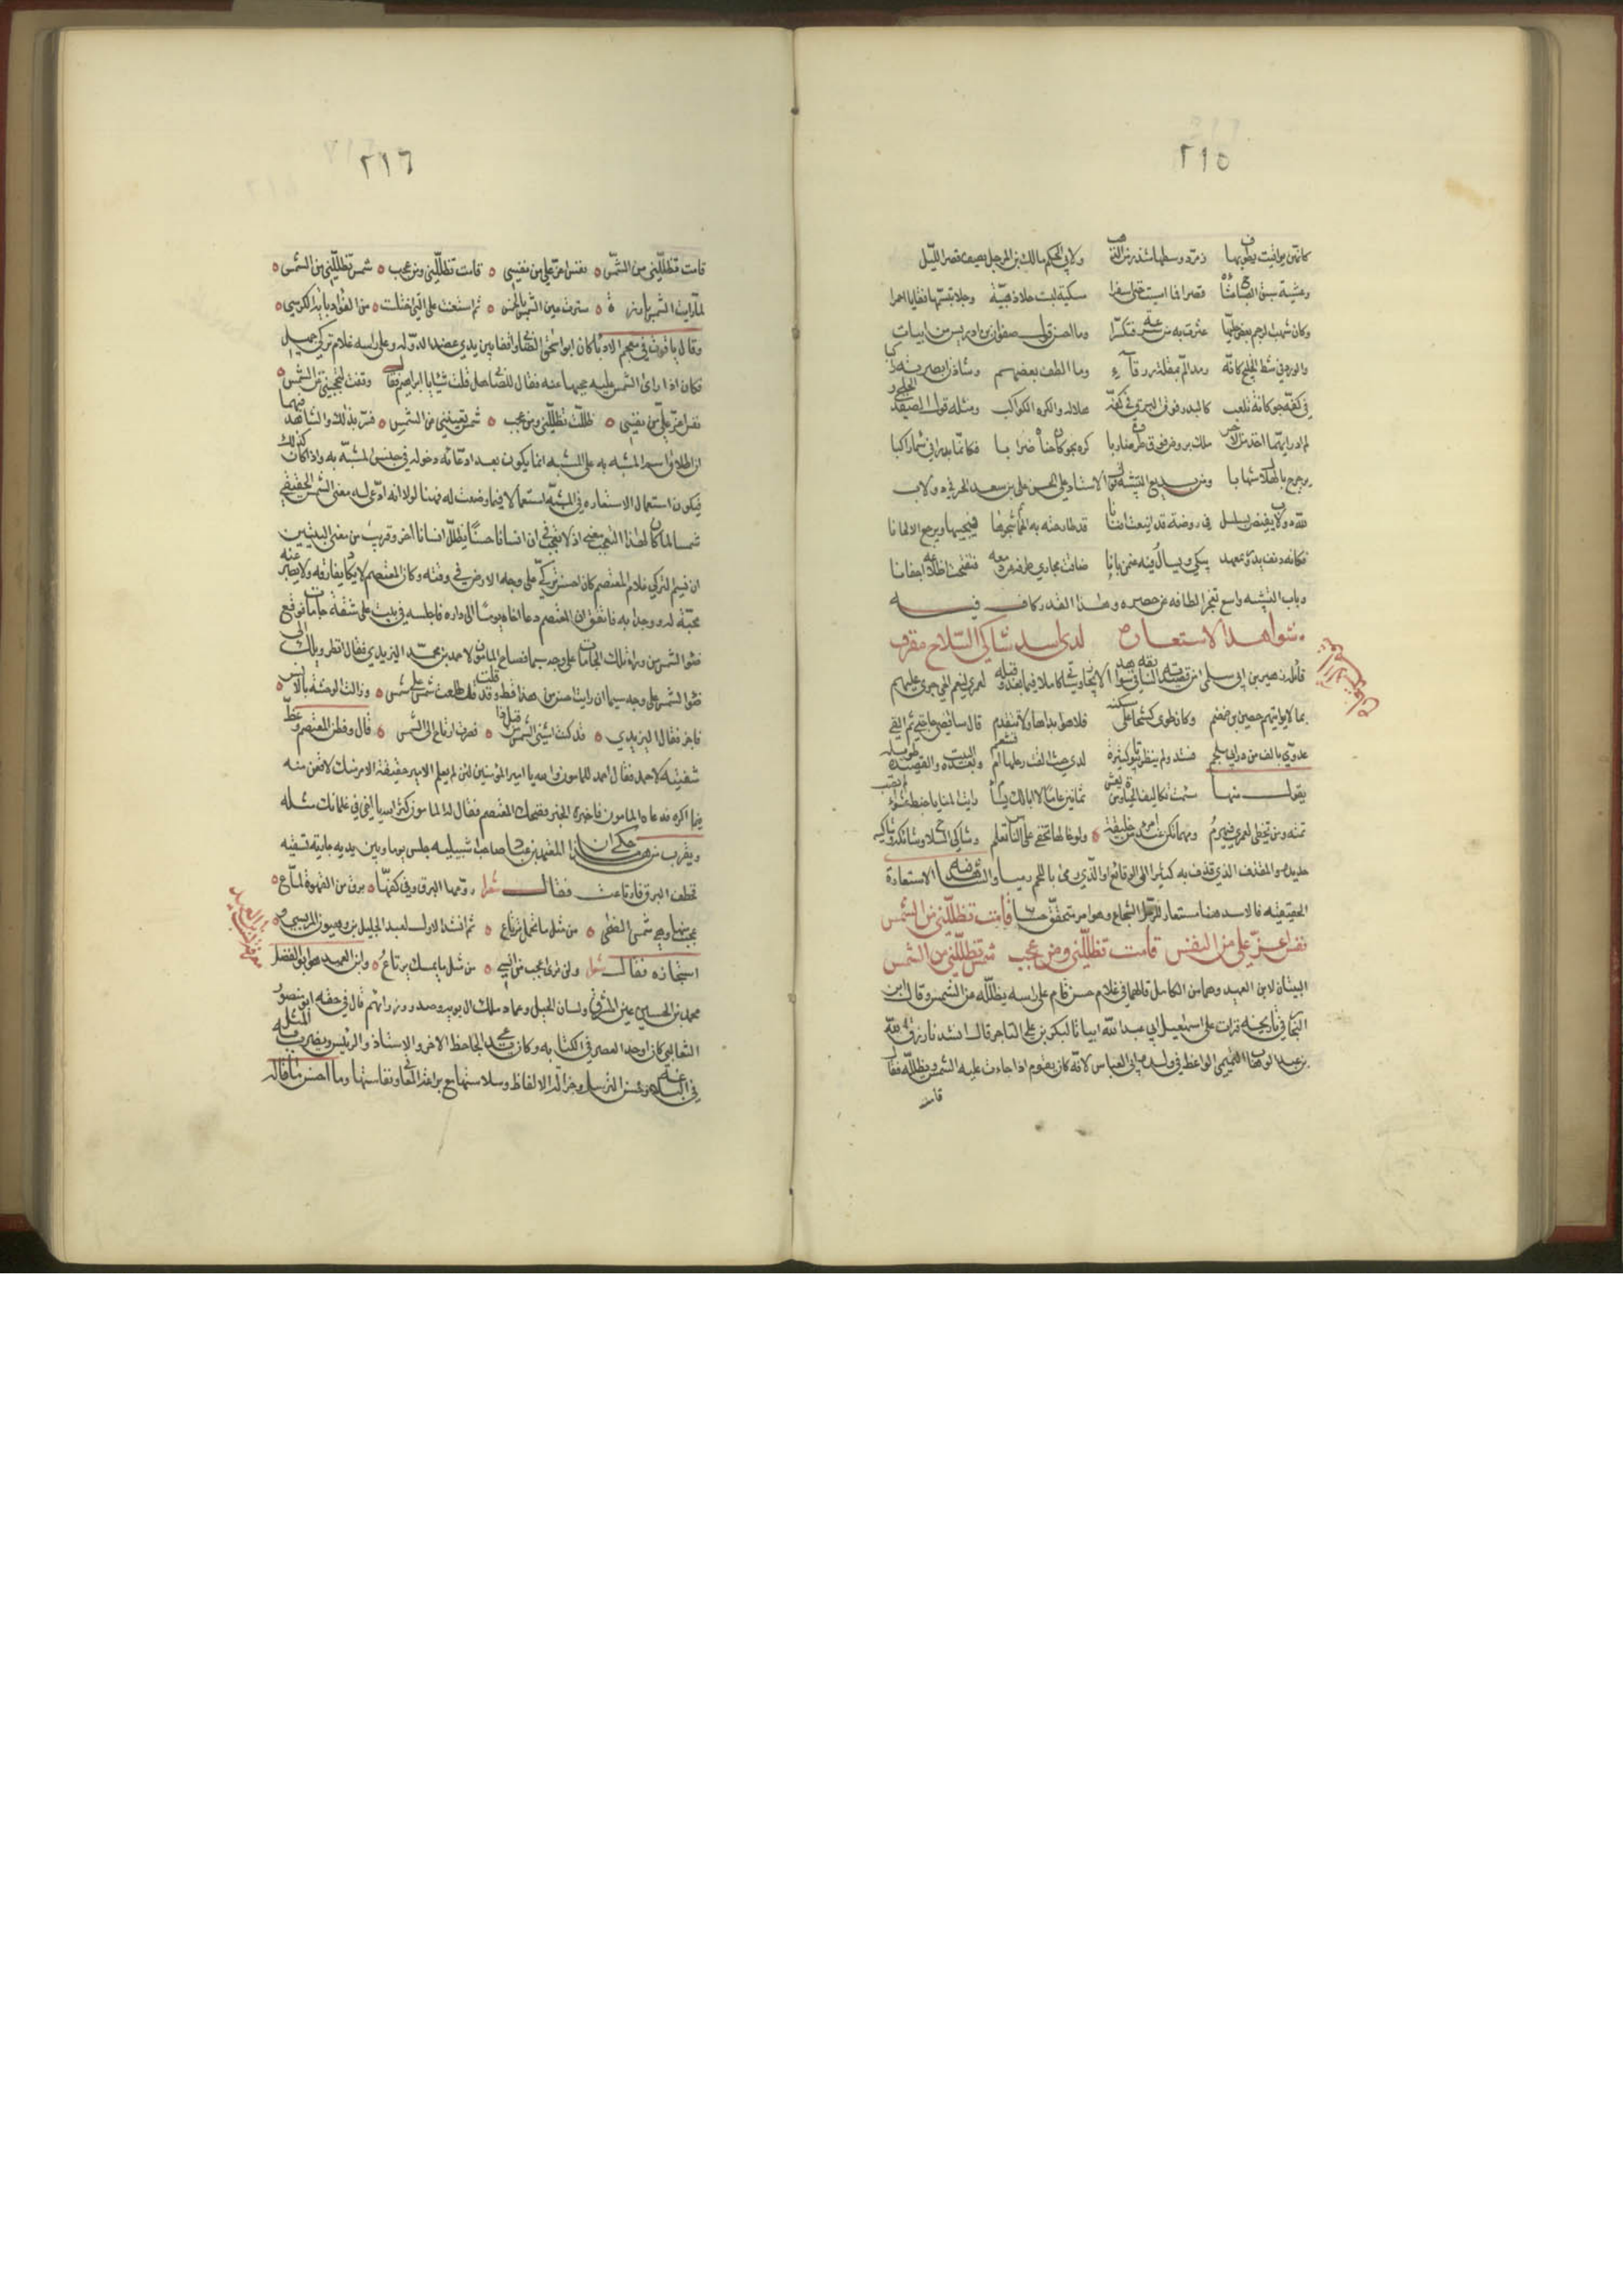 ٢١٥
كانهن يواقيت يطيف بها زمرد وسطها شذر من الذهب ولابي الحكم مالك بن المرحل يصف قصر الليل
وعشية سبق الصباح عشاءها قصرا فما امسيت حتى اسفرا مسكية لبست حلا ذهبية وجلا تبسمها نقابا احمرا
وكأن شهب الرجم بعض حليها عثرت به من سرعة فتكسرا وما احسن قول صفوان بن ادريس من ابيات
والورد في شط الخليج كأنه رمد الم بمقلة زرقاء وما الطف بعضهم وشادن ابصرته راكبا
في كفه جوكانة يلعب كالبدر فوق البرق في كفه هلاله والكرة الكواكب ومثله قول الصفي الحلي
ملك يروض فوق طرف ضاربا كرة بجوكان حناه ضرابا فكأنما بدر في سماء راكبا
برقا يزحزح بالهلال شهابا ومن بديع التشبيه قول الاستاد علي الحسن علي بن سعد الخير في دولاب
لله دولاب يفيض بسلسل في روضة قد اينعت افنانا قد طارحته به الحمائم شجوها فيجيبها ويرجع الالحانا
فكأنه دنف يدور بمعهد يبكي ويسأل فيه عمن بانا ضاقت مجاري طرفه عن دمعه فتفتحت اضلاعه اجفانا
وباب التشبيه واسع تعجز الطاقة عن حصره وهذا القدر كاف فيه
شواهد الاستعارة لدى اسد شاكي السلاح مقذف
قائله زهير بن ابي سلمى من قصيدته السابق
بما لا يواتيهم حصين بن ضمضم وكان طوى كشحا على مستكنة فلا هو بداها ولم يتقدم قال ساقضي حاجتي ثم اتقي
عدوي بالف من ورائي ملجم فشد ولم ينظر بيوتا كثيرة لدى حيث القت رحلها ام قشعم وبعده البيت والقصيدة طويلة
يقول منها سئمت تكاليف الحياة ومن يعش ثمانين عاما لا ابالك يسأم رايت المنايا خبط عشواء من تصب
تمته ومن تخطئ يعمر فيهرم ومهما تكن عند امرئ من خليقة ولو خالها تخفى على الناس تعلم وشاكي السلاح وشائكه وشاكه
حديده والمقذف الذي قذف به كثيرا الى الوقائع او الذي رمى باللحم رميا والشاهد فيه الاستعارة
الحقيقية فالاسد هنا مستعار للرجل الشجاع وهو امر متحقق حسا قامت تظللني من الشمس
نفس اعز علي من النفس قامت تظللني ومن عجب شمس تظللني من الشمس
البيتان لابن العميد وهما من الكامل قالهما في غلام حسن قام على راسه يظلله من الشمس وقال ابن
النجار في تاريخه قرات على اسمعيل ابي عبد الله ابياتا لبكر بن علي التاجر قال انشدنا رزق الله
بن عبد الوهاب التميمي الواعظ في ولده ابي العباس لانه كان يقوم اذا جاءت عليه الشمس ويظلله فقال
قامت
٢١٦
قامت تظللني من الشمس نفس اعز علي من نفسي قامت تظللني ومن عجب شمس تظللني من الشمس
لما رايت الشمس بارزة سترت عين الشمس بالخمس ثم استعنت على التي اختلت من الفؤاد باية الكرسي
وقال ياقوت في معجم الادباء كان ابو اسحق الصابي واقفا بين يدي عضد الدولة وعلى راسه غلام تركي جميل
فكان اذا راى الشمس عليه حجبها عنه فقال للصابي هل قلت شيئا يا ابراهيم فقال وقفت لتحجبني من الشمس
نفس اعز علي من نفسي ظلت تظللني ومن عجب شمس تغيبني من الشمس فسر بذلك والشاهد فيهما
ان اطلاق اسم المشبه به على المشبه انما يكون بعد ادعائه دخوله في جنس المشبه به واذا كان كذلك
فيكون استعمال الاستعارة في المشبه استعمالا فيما وضعت له فهنا لولا انه ادعى له معنى الشمس الحقيقي
شمسا لما كان لهذا التعجب معنى اذ لا تعجب في ان انسانا حسنا يظلل انسانا اخر وقريب من معنى البيتين
ان قسيم التركي غلام المعتصم كان احسن تركي على وجه الارض في وقته وكان المعتصم لا يكاد يفارقه ولا يصبر عنه
محبة له ووجدا به فاتفق ان المعتصم دعا اخاه يوما الى داره فاجلسه في بيت على سقفه جامات فوقع
ضوء الشمس من وراء تلك الجامات على وجه سيما فصاح المامون لاحمد بن محمد اليزيدي فقال انظر ويلك الى
ضوء الشمس على وجه سيما ارايت احسن من هذا قط وقد قلت قد طلعت شمس على شمس وزالت الوحشة بالانس
فاجز فقال اليزيدي قد كنت اشنا الشمس قبل ذا فصرت ارتاح الى الشمس قال وفطن المعتصم فعض
شفتيه لاحمد فقال احمد للمامون والله يا امير المؤمنين لئن لم يعلم الامير حقيقة الامر منك لاقعن منه
فيما اكره فدعاه المامون فاخبره الخبر فضحك المعتصم فقال له المامون كثر الله يا اخي في غلمانك مثله
ويقرب من هذا حكي ان المعتمد بن عباد صاحب شبيلية جلس يوما وبين يديه جارية تسقيه
فخطف البرق فارتاعت فقال شعرا روعها البرق وفي كفها برق من القهوة لماع
عجبت منها وهي شمس الضحى من مثل ما تحمل ترتاع ثم انشد الاول لعبد الجليل بن وهبون المرسي و
استجازه فقال شعرا ولن ترى اعجب من انس من مثل ما يمسك يرتاع وابن العميد هو ابو الفضل
محمد بن الحسين عين المشرق ولسان الجبل وعماد ملك ال بويه وصدر وزرائهم قال في حقه ابو منصور
الثعالبي كان اوحد العصر في الكتابة وكان يدعى الجاحظ الاخر والاستاذ والرئيس ويضرب به المثل
في البلاغة وحسن الترسل وجزالة الالفاظ وسلاستها مع براعة المعاني ونفاستها وما احسن ما قاله